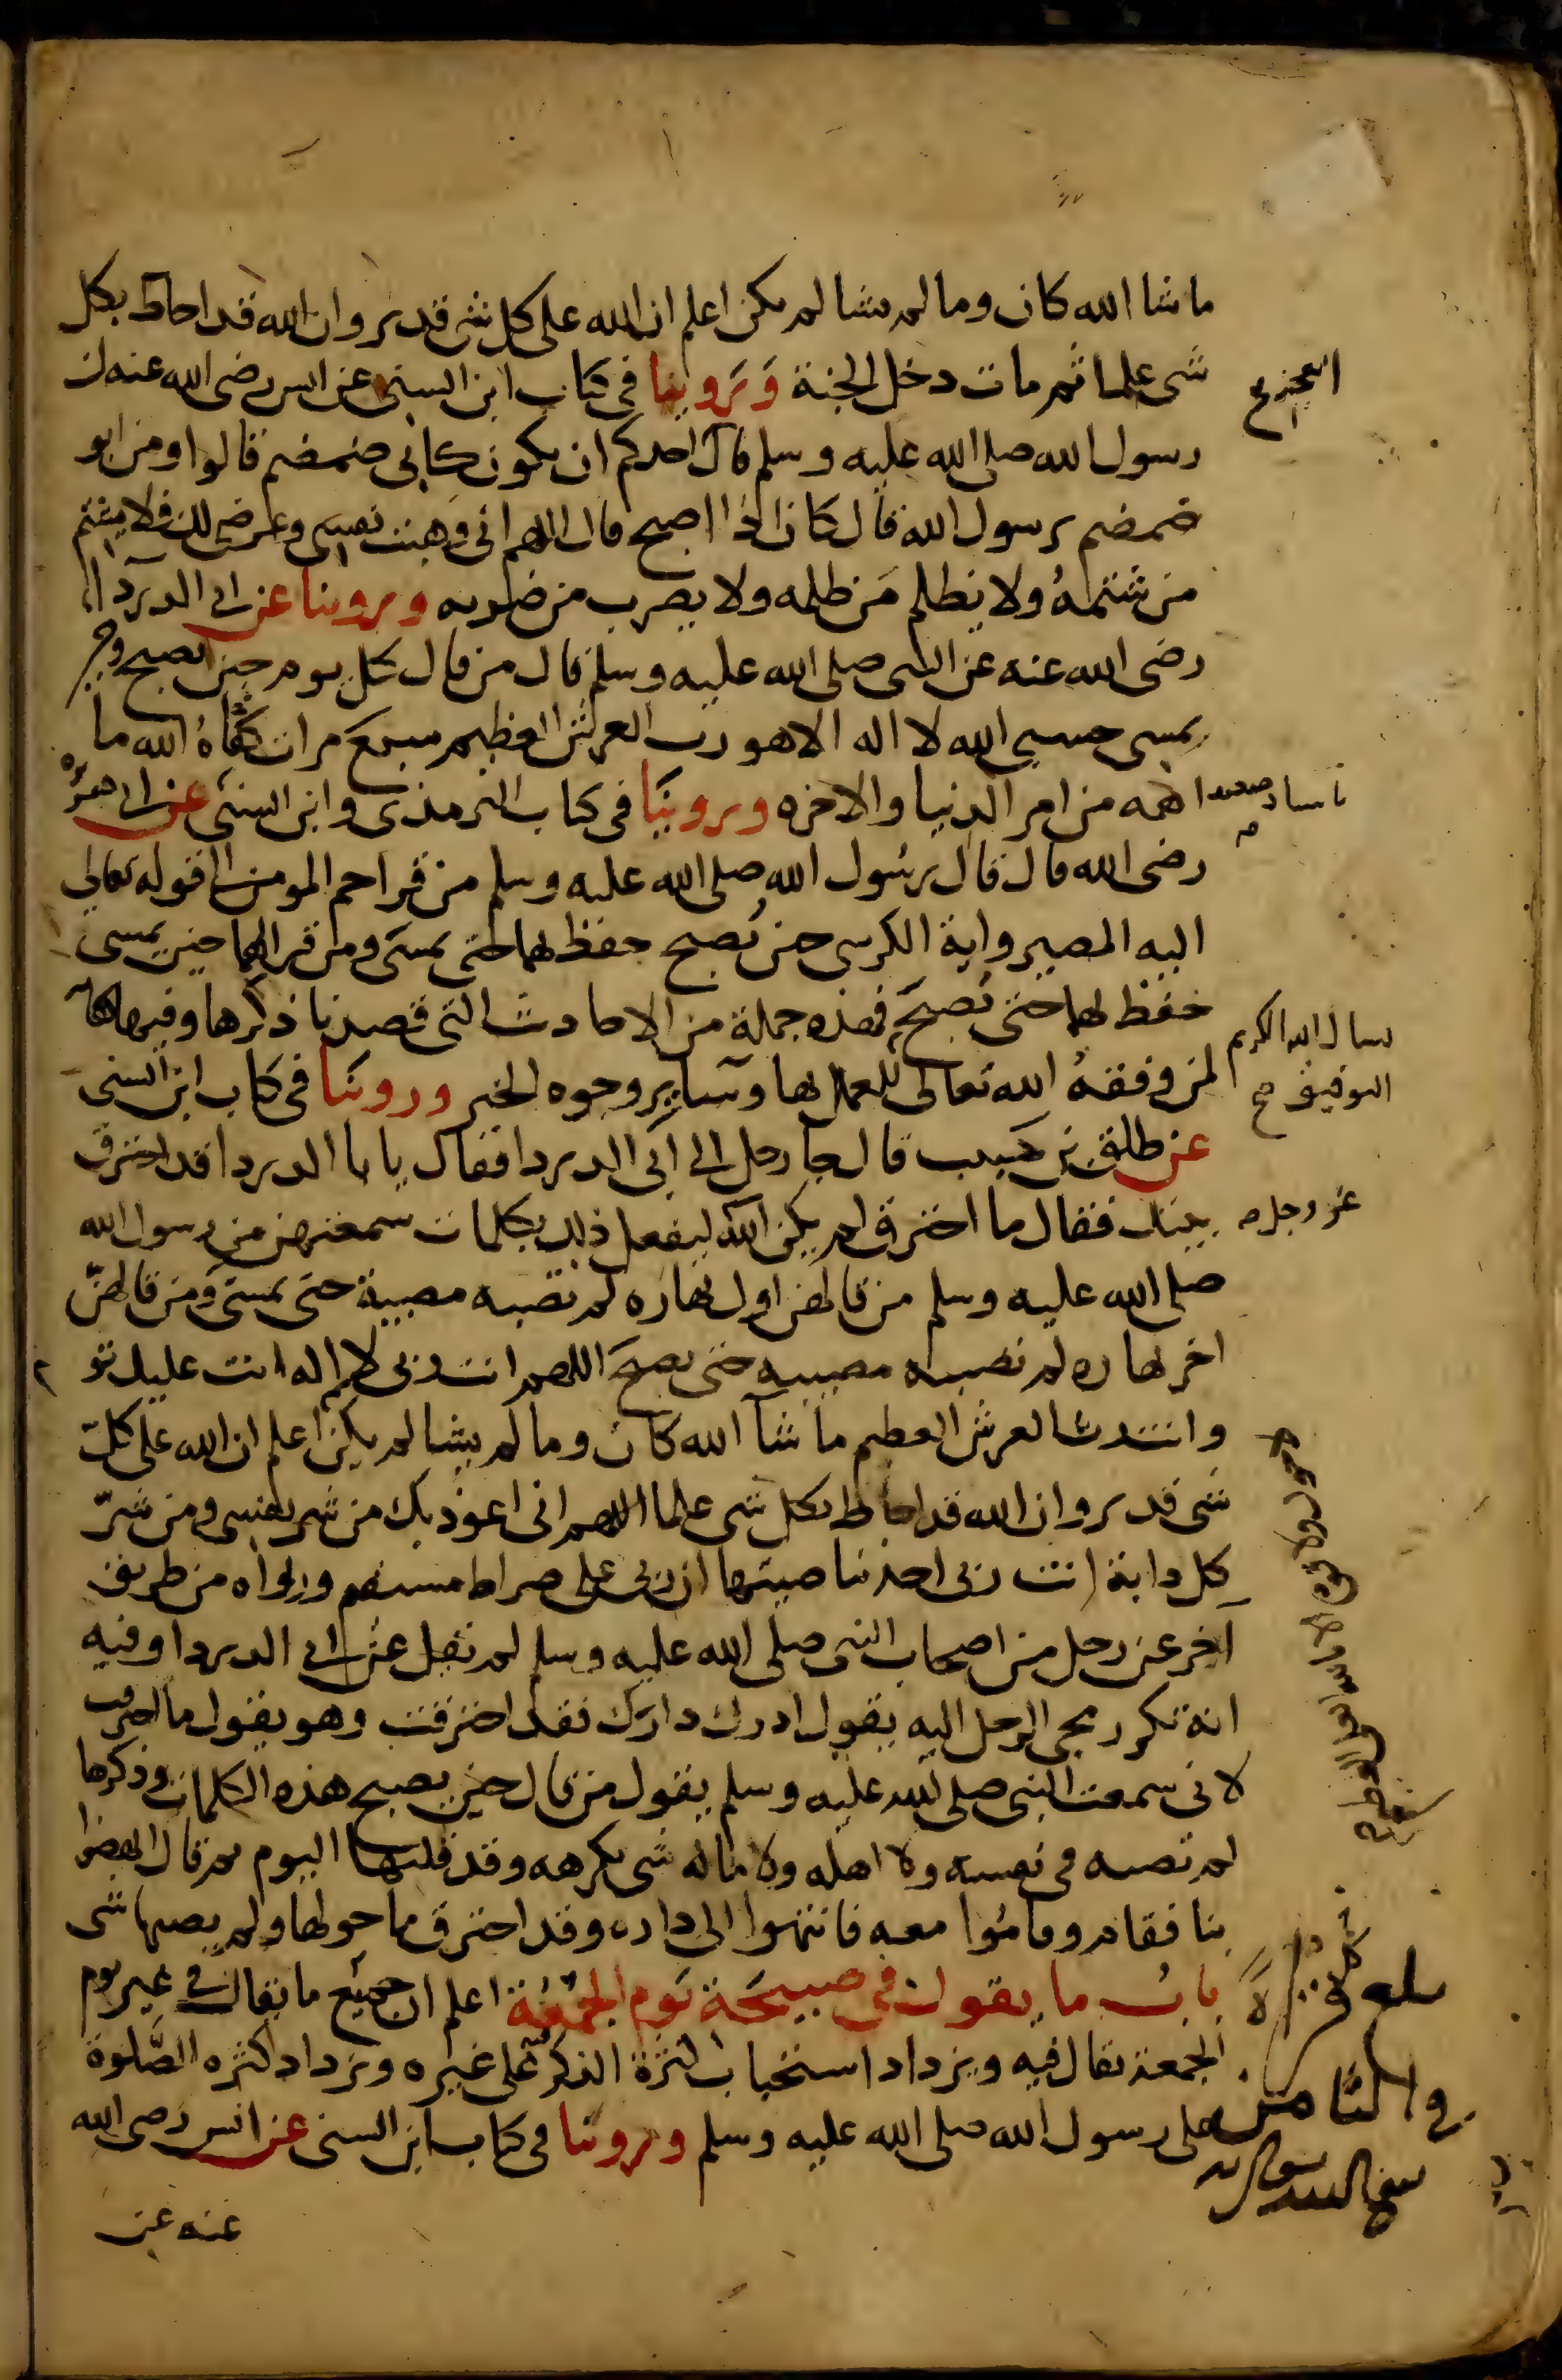 ما شا الله كان وما لم يشا لم يكن اعلم ان الله على كل شى قدير وان الله قد احاط بكل
شى علما ثم مات دخل الجنة وَرَوينا فى كتاب ابن السنى عن انس رضى الله عنه ان
رسول الله صلى الله عليه وسلم قال احدكم ان يكون كابى ضمضم قالوا ومن ابو
ضمضم يرسول الله قال كان اذا اصبح قال اللهم انى وهبت نفسى وعرضى لك فلا يشتم
من شتمهُ ولا يظلم مَن ظلمه ولا يضرب من ضربه وروينا عن ابى الدرداء
رضى الله عنه عن النبى صلى الله عليه وسلم قال من قال كل يوم حين يصبح وحين
يمسى حسبى الله لا اله الا هو رب العرش العظيم سبع مرات كفاهُ الله ما
اهمه من امر الدنيا والاخره وروينَا فى كتاب الترمذى وابن السنى عن ابى هريره
باسناد ضعيف
رضى الله قال قال رسُول الله صلى الله عليه وسلم من قرا حم المومن الى قوله تعالى
اليه المصير واية الكرسى حين يُصبح حفظ بهما حتى يمسَى ومن قرا بهما حين يمسى
حفظ بهما حتى يُصبحَ فهذه جملة من الاحاديث التى قصدنا ذكرها وفيها كفاية
لمن وفقهُ الله تعالى للعمل بها وسآير وجوه الخير وروينَا فى كتاب ابن السنى
نسال الله الكريم
التوفيق صح
عن طلق بن حَبيب قال جا رجل الى ابى الدردا فقال يا با الدردا قد احترق
بيتك فقال ما احترق لم يكن الله ليفعل ذلك بكلمات سمعتهن من رسول الله
عز وجل
صلى الله عليه وسلم من قالهن اول نهاره لم تصبه مصيبة حتى يمسى ومن قالهنّ
اخر نهاره لم تصبه مصيبه حتى يصبحَ اللهم انت ربى لا اله انت عليك تو
وانت رب العرش العظيم ما شآ الله كان وما لم يشا لم يكن اعلم ان الله على كلّ
شى قدير وان الله قد احاط بكل شى علما اللهم انى اعوذ بك من شر نفسى ومن شرّ
كل دابة انت ربى اخذ بناصيتها ان ربى على صراط مستقيم ورواه من طريق
لا حول ولا قوة الا بالله العلى العظيم
آخر عن رجل من اصحاب النبى صلى الله عليه وسلم لم يقل عن ابى الدردا وفيه
انه تكرر مجى الرجل اليه يقول ادرك دارك فقد احترقت وهو يقول ما احترقت
لانى سمعت النبى صلى الله عليه وسلم يقول من قال حين يصبح هذه الكلمات وذكرها
لم تصبه فى نفسه ولا اهله ولا ماله شى يكرهه وقد قلتها اليوم ثم قال انهضوا
بنا فقام وقامُوا معه فانتهوا الى داره وقد احترق ما حولها ولم يصبها شى
بابُ ما يقول فى صبيحَة يَوم الجُمُعَة اعلم ان جميع ما يقال فى غير يوم
الجمعة يقال فيه ويزداد استحباب كثرة الذكر على غيره ويزداد كثره الصَّلوة
على رسول الله صلى الله عليه وسلم وروينَا فى كتاب ابن السنى عن انس رضى الله
بلغ قراة
فى الثامن
عنه عن